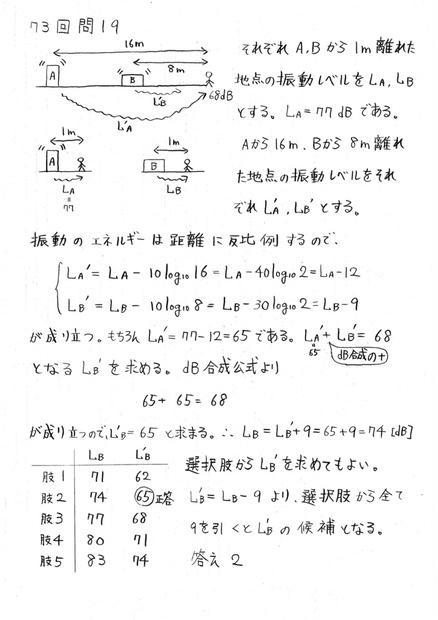 73回問19
16m
8m
A
B
68dB
L'B
L'A
1m
1m
A
B
LA
LB
77
それぞれA,Bから1m離れた
地点の振動レベルをLA, LB
とする。LA=77dBである。
Aから16m、Bから8m離れ
た地点の振動レベルをそれ
ぞれL'A, LB'とする。
振動のエネルギーは距離に反比例するので、
LA' = LA - 10log₁₀16 = LA - 40log₁₀2 = LA - 12
LB' = LB - 10log₁₀8 = LB - 30log₁₀2 = LB - 9
が成り立つ。もちろんLA'=77-12=65である。LA'+LB'=68
65
dB合成の+
となるLB'を求める。dB合成公式より
65+65=68
が成り立つので、L'B=65と求まる。∴LB=LB'+9=65+9=74[dB]
LB L'B
肢1 71 62
肢2 74 65 正答
肢3 77 68
肢4 80 71
肢5 83 74
選択肢からLB'を求めてもよい。
L'B=LB-9より、選択肢から全て
9を引くとL'Bの候補となる。
答え 2